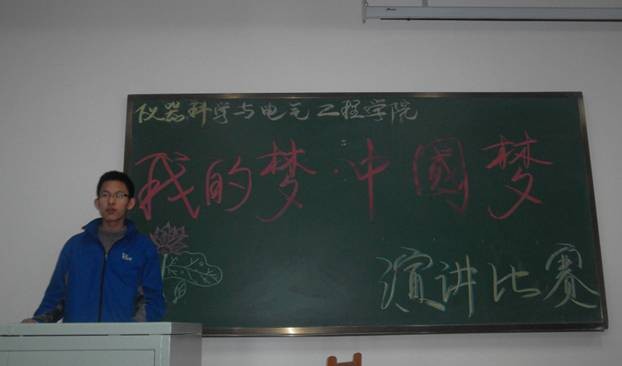 仪器科学与电气工程学院
我的梦·中國梦
演讲比赛